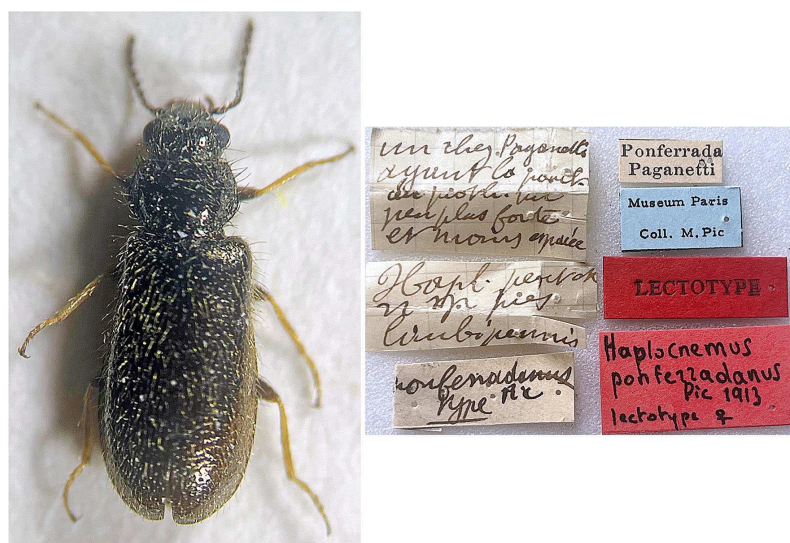 un chez Paganetti
ayant la ponct.
du proth. un
peu plus forte
et moins espacée
Hapl.
limbipennis
ponferradanus
Type Pic
Ponferrada
Paganetti
Museum Paris
Coll. M. Pic
LECTOTYPE
Haplocnemus
ponferradanus
Pic 1913
lectotype ♀